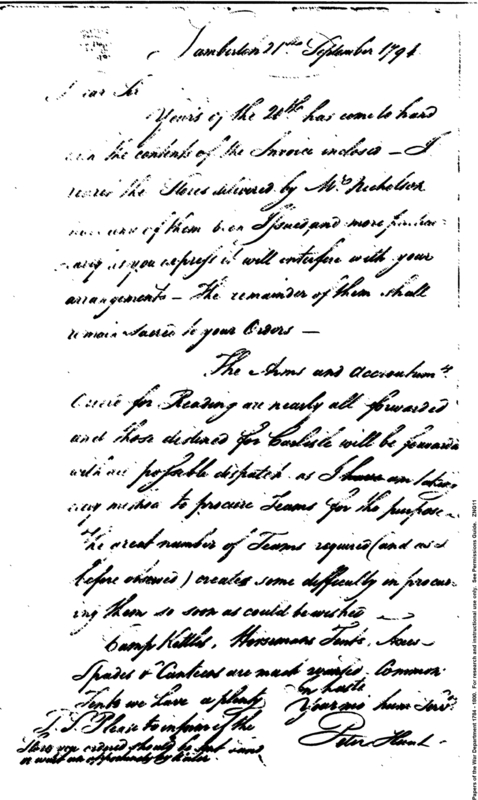 Lamberton 21st September 1794
Dear Sir
Yours of the 20th has come to hand
with the contents of the Invoice inclosed – I
the Stores delivered by Mr Nicholson
of them been Issued, and more
as you express it will interfere with your
arrangements – The remainder of them shall
remain Sacred to your Orders –
The Arms and Accoutrumts
for Reading are nearly all forwarded
and those destined for Carlisle will be forwarded
with all possable dispatch as I have am taking
every method to procure Teams for the purpose –
The great number of Teams required (and as I
before observed) creates some difficulty in procur-
ing them so soon as could be wished –
Camp Kettles, Horsemans Tents, Axes
Spades & Canteens are much required Common
Tents we have a plenty
in haste
Your hum Servt
Peter Hunt
P.S. Please to inform if the
Stores you ordered should be sent
or wait an oppertunity by Water.
Papers of the War Department 1784 - 1800. For research and instructional use only. See Permissions Guide. ZNG11